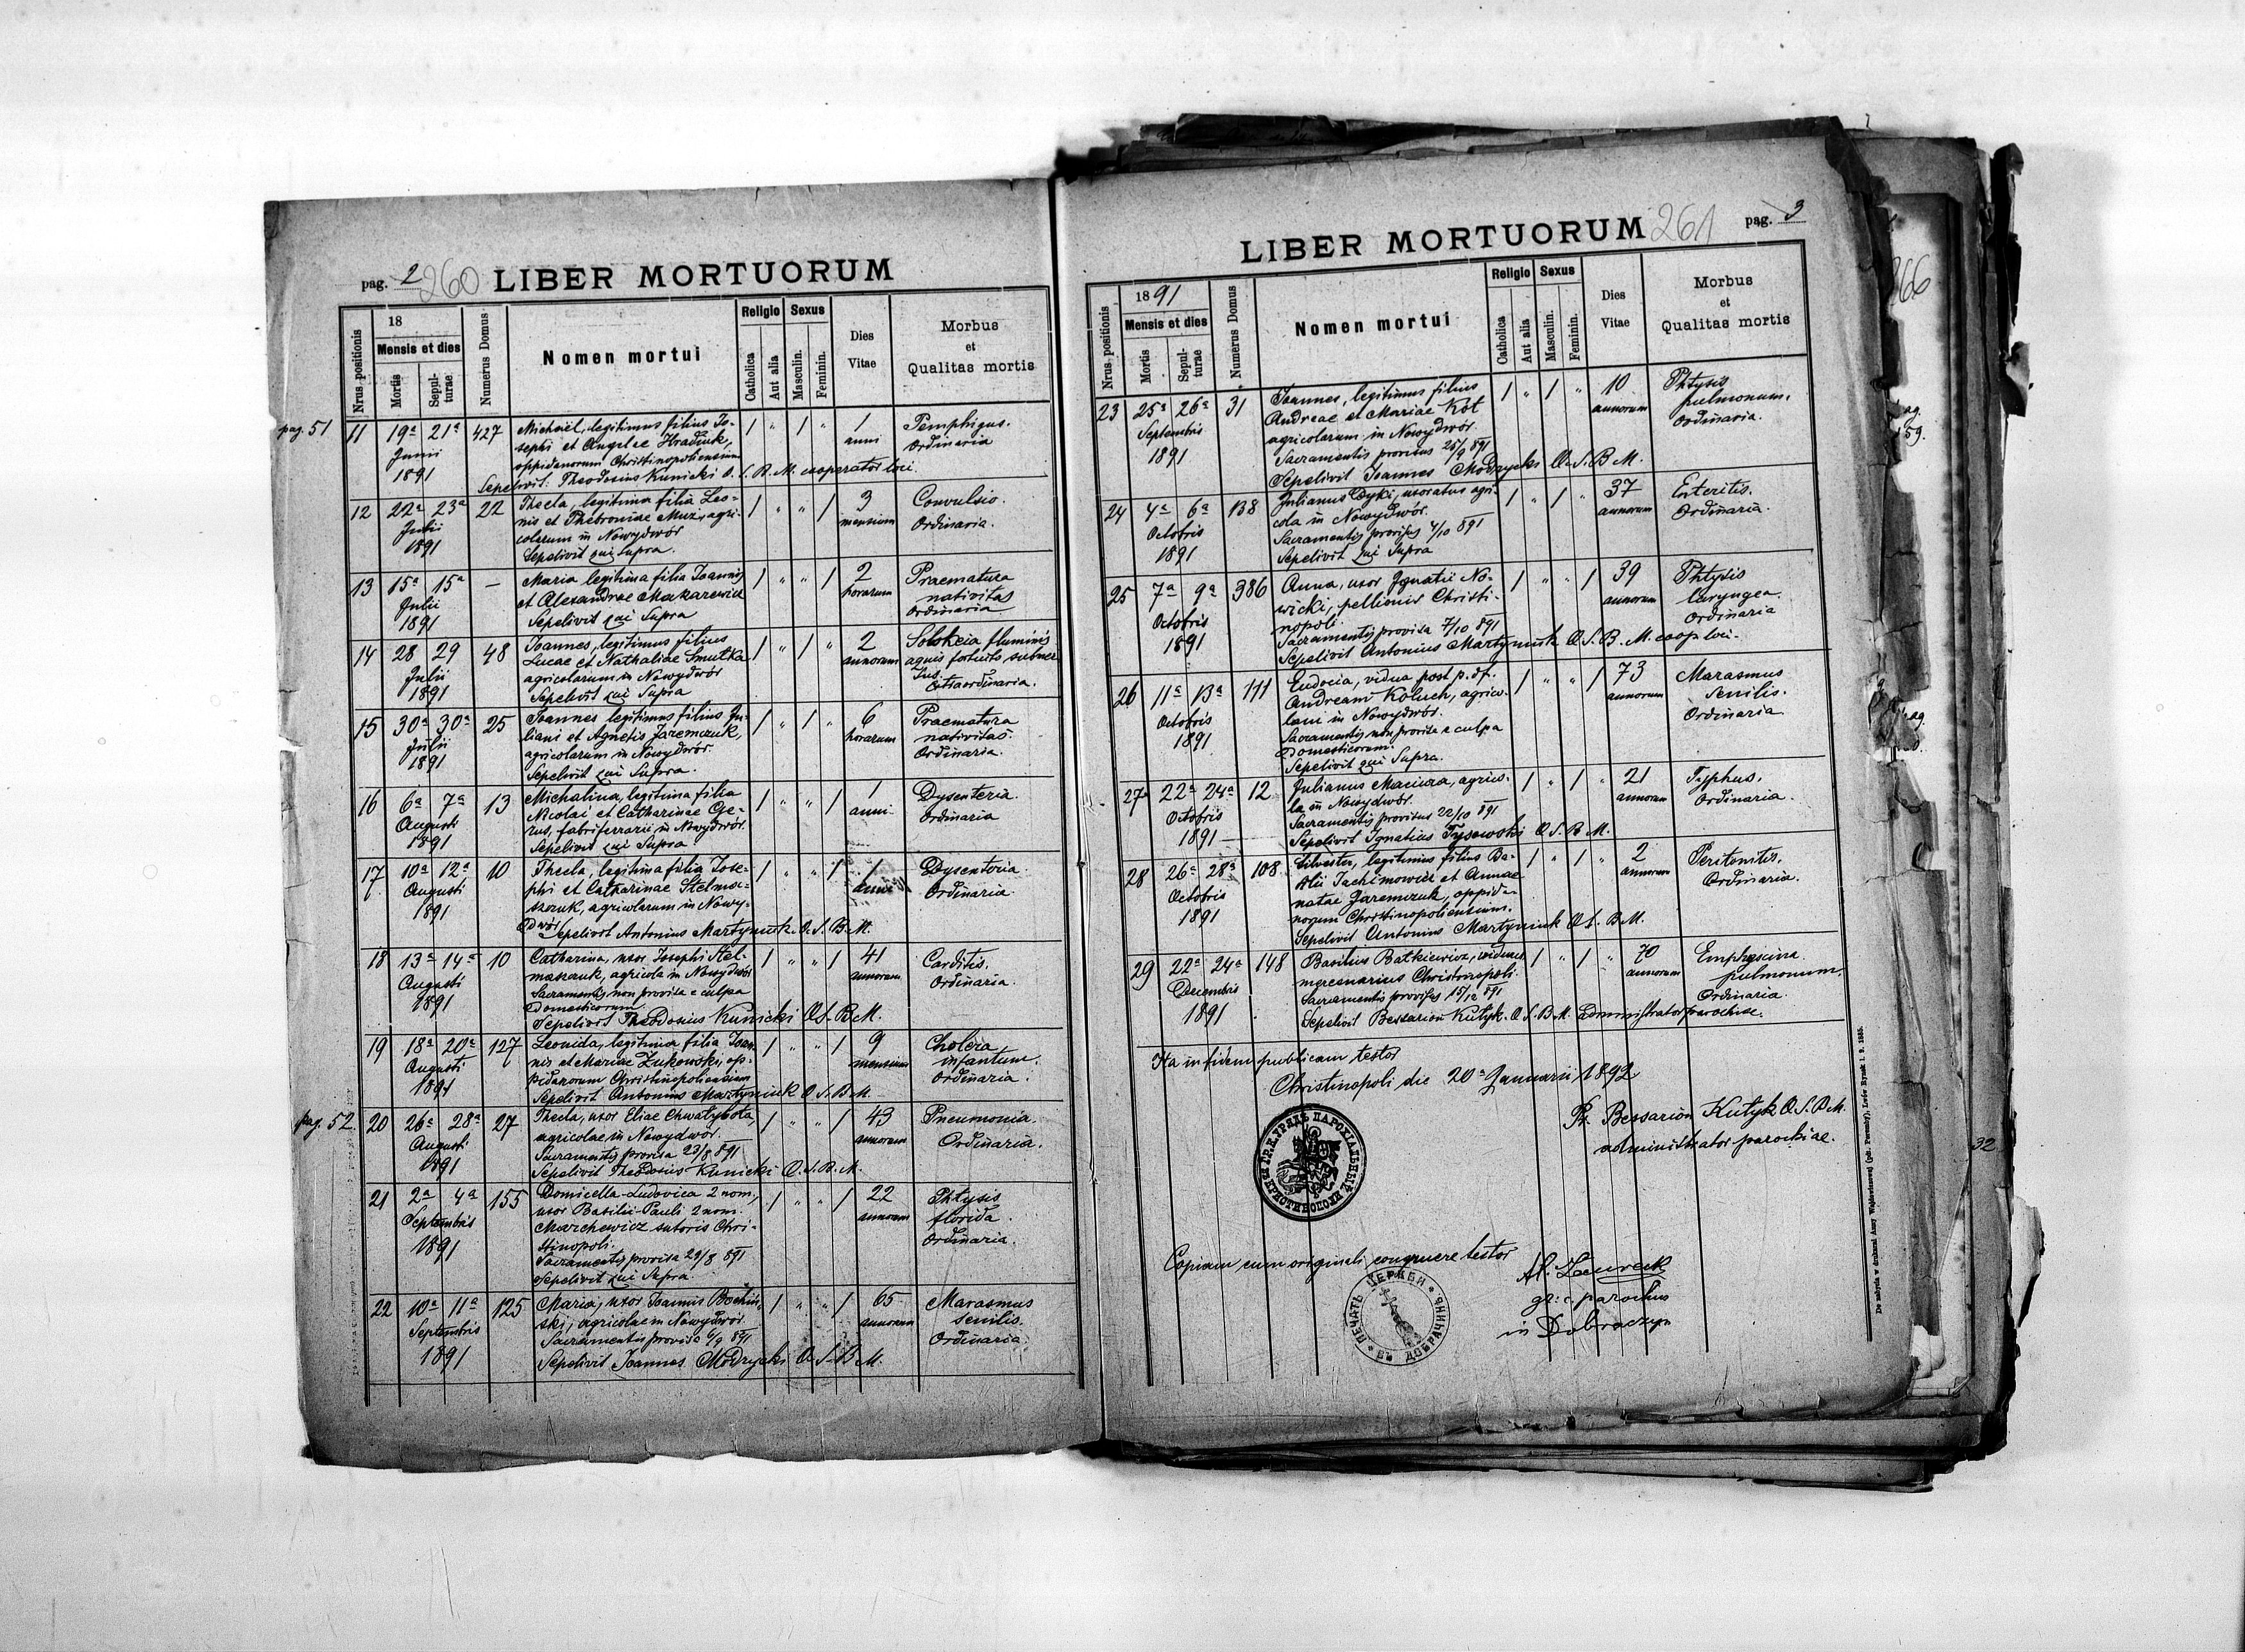 pag. 2 260 LIBER MORTUORUM
Nrus positionis
18
Mensis et dies
Mortis
Sepul-
turae
Numerus Domus
Nomen mortui
Religio
Catholica
Aut alia
Sexus
Masculin.
Feminin.
Dies
Vitae
Morbus
et
Qualitas mortis
pag. 51
11 19a 21a 427 Michael, legitimus filius Jo- 1 " 1 " 1 Pemphigus.
Junii sephi et Angelae Hraducuk, anni Ordinaria
oppidanorum Christinopoliensium
1891 Sepelivit: Theodosius Kunicki O. S. B. M. cooperator loci.
12 22a 23a 22 Thecla, legitima filia Leo- 1 " " 1 3 Convulsio.
Julii nis et Thebroniae Muz, agri- mensium Ordinaria.
1891 colarum in Nowydwór
Sepelivit qui Supra.
13 15a 15a — Maria legitima filia Joannis 1 " " 1 2 Praematura
Julii et Alexandrae Makarewicz horarum nativitas
1891 Sepelivit qui Supra Ordinaria
14 28 29 48 Joannes, legitimus filius 1 " 1 " 2 Solokeia fluminis
Julii Lucae et Nathaliae Smutka annorum aquis fortuito submer
1891 agricolarum in Nowydwór sus.
Sepelivit qui Supra Extraordinaria.
15 30a 30a 25 Joannes legitimus filius Ju- 1 " 1 " 6 Praematura
Julii liani et Agnetis Jaremczuk, horarum nativitas
1891 agricolarum in Nowydwór. Ordinaria.
Sepelivit qui Supra.
16 6a 7a 13 Michalina, legitima filia 1 " " 1 1 Dysenteria.
Augusti Nicolai et Catharinae Ge- anni Ordinaria
1891 rus, fabriferrarii in Nowydwór.
Sepelivit qui Supra
17 10a 12a 10 Thecla, legitima filia Jose- 1 " " 1 1 Dysenteria.
Augusti phi et Catharinae Stelma- anni Ordinaria.
1891 szczuk, agricolarum in Nowy-
dwór Sepelivit Antonius Martyniuk O. S. B. M.
18 13a 14a 10 Catharina, uxor Josephi Stel- 1 " " 1 41 Carditis.
Augusti maszczuk, agricola in Nowydwór annorum Ordinaria.
1891 Sacramentis non provisa e culpa
Domesticorum
Sepelivit Theodosius Kunicki O. S. B. M.
19 18a 20a 127 Leonida, legitima filia Joan- 1 " " 1 9 Cholera
Augusti nis et Mariae Żukowski, op- mensium infantum.
1891 pidanorum Christinopoliensium Ordinaria.
Sepelivit Antonius Martyniuk O. S. B. M.
pag. 52.
20 26a 28a 27 Thecla, uxor Eliae Chwatybota, 1 " " 1 43 Pneumonia.
Augusti agricolae in Nowydwór. annorum Ordinaria.
1891 Sacramentis provisa 23/8 891
Sepelivit Theodosius Kunicki O. S. B. M.
21 2a 4a 155 Domicella-Ludovica 2 nom, 1 " " 1 22 Phtysis
Septembris uxor Basilii-Pauli 2 nom. annorum florida.
1891 Marchewicz sutoris Chri- Ordinaria.
stinopoli.
Sacramentis provisa 29/8 891
Sepelivit qui Supra
22 10a 11a 125 Maria, uxor Joannis Bochiń- 1 " " 1 65 Marasmus
Septembris ski, agricolae in Nowydwór annorum senilis.
1891 Sacramentis provisa 6/9 891 Ordinaria.
Sepelivit Joannes Modrycki O. S. B. M.
LIBER MORTUORUM 261 pag. 3
Nrus positionis
1891
Mensis et dies
Mortis
Sepul-
turae
Numerus Domus
Nomen mortui
Religio
Catholica
Aut alia
Sexus
Masculin.
Feminin.
Dies
Vitae
Morbus
et
Qualitas mortis
23 25a 26a 31 Joannes, legitimus filius 1 " 1 " 10 Phtysis
Septembris Andreae et Mariae Kot annorum pulmonum.
1891 agricolarum in Nowydwór. Ordinaria.
Sacramentis provisus 25/9 891
Sepelivit Joannes Modrycki O. S. B. M.
24 4a 6a 138 Julianus Dyki, uxoratus agri- 1 " 1 " 37 Enteritis.
Octobris cola in Nowydwór. annorum Ordinaria.
1891 Sacramentis provisus 4/10 891
Sepelivit qui Supra
25 7a 9a 386 Anna, uxor Ignatii No- 1 " " 1 39 Phtysis
Octobris wicki, pellionis Christi- annorum laryngea.
1891 nopoli. Ordinaria
Sacramentis provisa 7/10 891
Sepelivit Antonius Martyniuk O. S. B. M. coop loci.
26 11a 13a 111 Eudocia, vidua post p. df. 1 " " 1 73 Marasmus
Octobris Andream Koluch, agrico- annorum senilis.
1891 lam in Nowydwór. Ordinaria
Sacramentis non provisa e culpa
Domesticorum.
Sepelivit qui Supra.
27 22a 24a 12 Julianus Maciura, agrico- 1 " 1 " 21 Typhus.
Octobris la in Nowydwór. annorum Ordinaria.
1891 Sacramentis provisus 22/10 891
Sepelivit Ignatius Tysowski O. S. B. M.
28 26a 28a 108 Silvester, legitimus filius Ba- 1 " 1 " 2 Peritonitis.
Octobris silii Jachimowicz et Annae annorum Ordinaria.
1891 natae Jaremczuk, oppida-
norum Christinopoliensium.
Sepelivit Antonius Martyniuk O. S. B. M.
29 22a 24a 148 Basilius Batkiewicz, viduus 1 " 1 " 70 Emphysema
Decembris mercenarius Christinopoli. annorum pulmonum.
1891 Sacramentis provisus 15/12 891 Ordinaria.
Sepelivit Bessarion Kutyk. O. S. B. M. administrator parochiae.
Ita in fidem publicam testor
Christinopoli die 20a Januarii 1892
Pr. Bessarion Kutyk O. S. B. M.
administrator parochiae.
Copiam cum originali congruere testor
gr: c. parochus
in Dobraczyn
ПЕЧАТЬ ЦЕРКВИ ВЪ ДОБРАЧИНѢ
166
ag.
59.
32